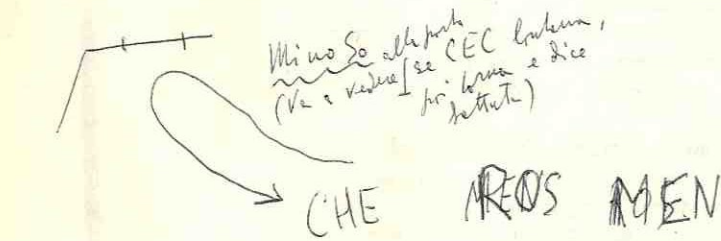 Mino So alla porta
(Va a vedere se CEC lontana,
poi torna e dice
battuta)
CHE REOS MEN